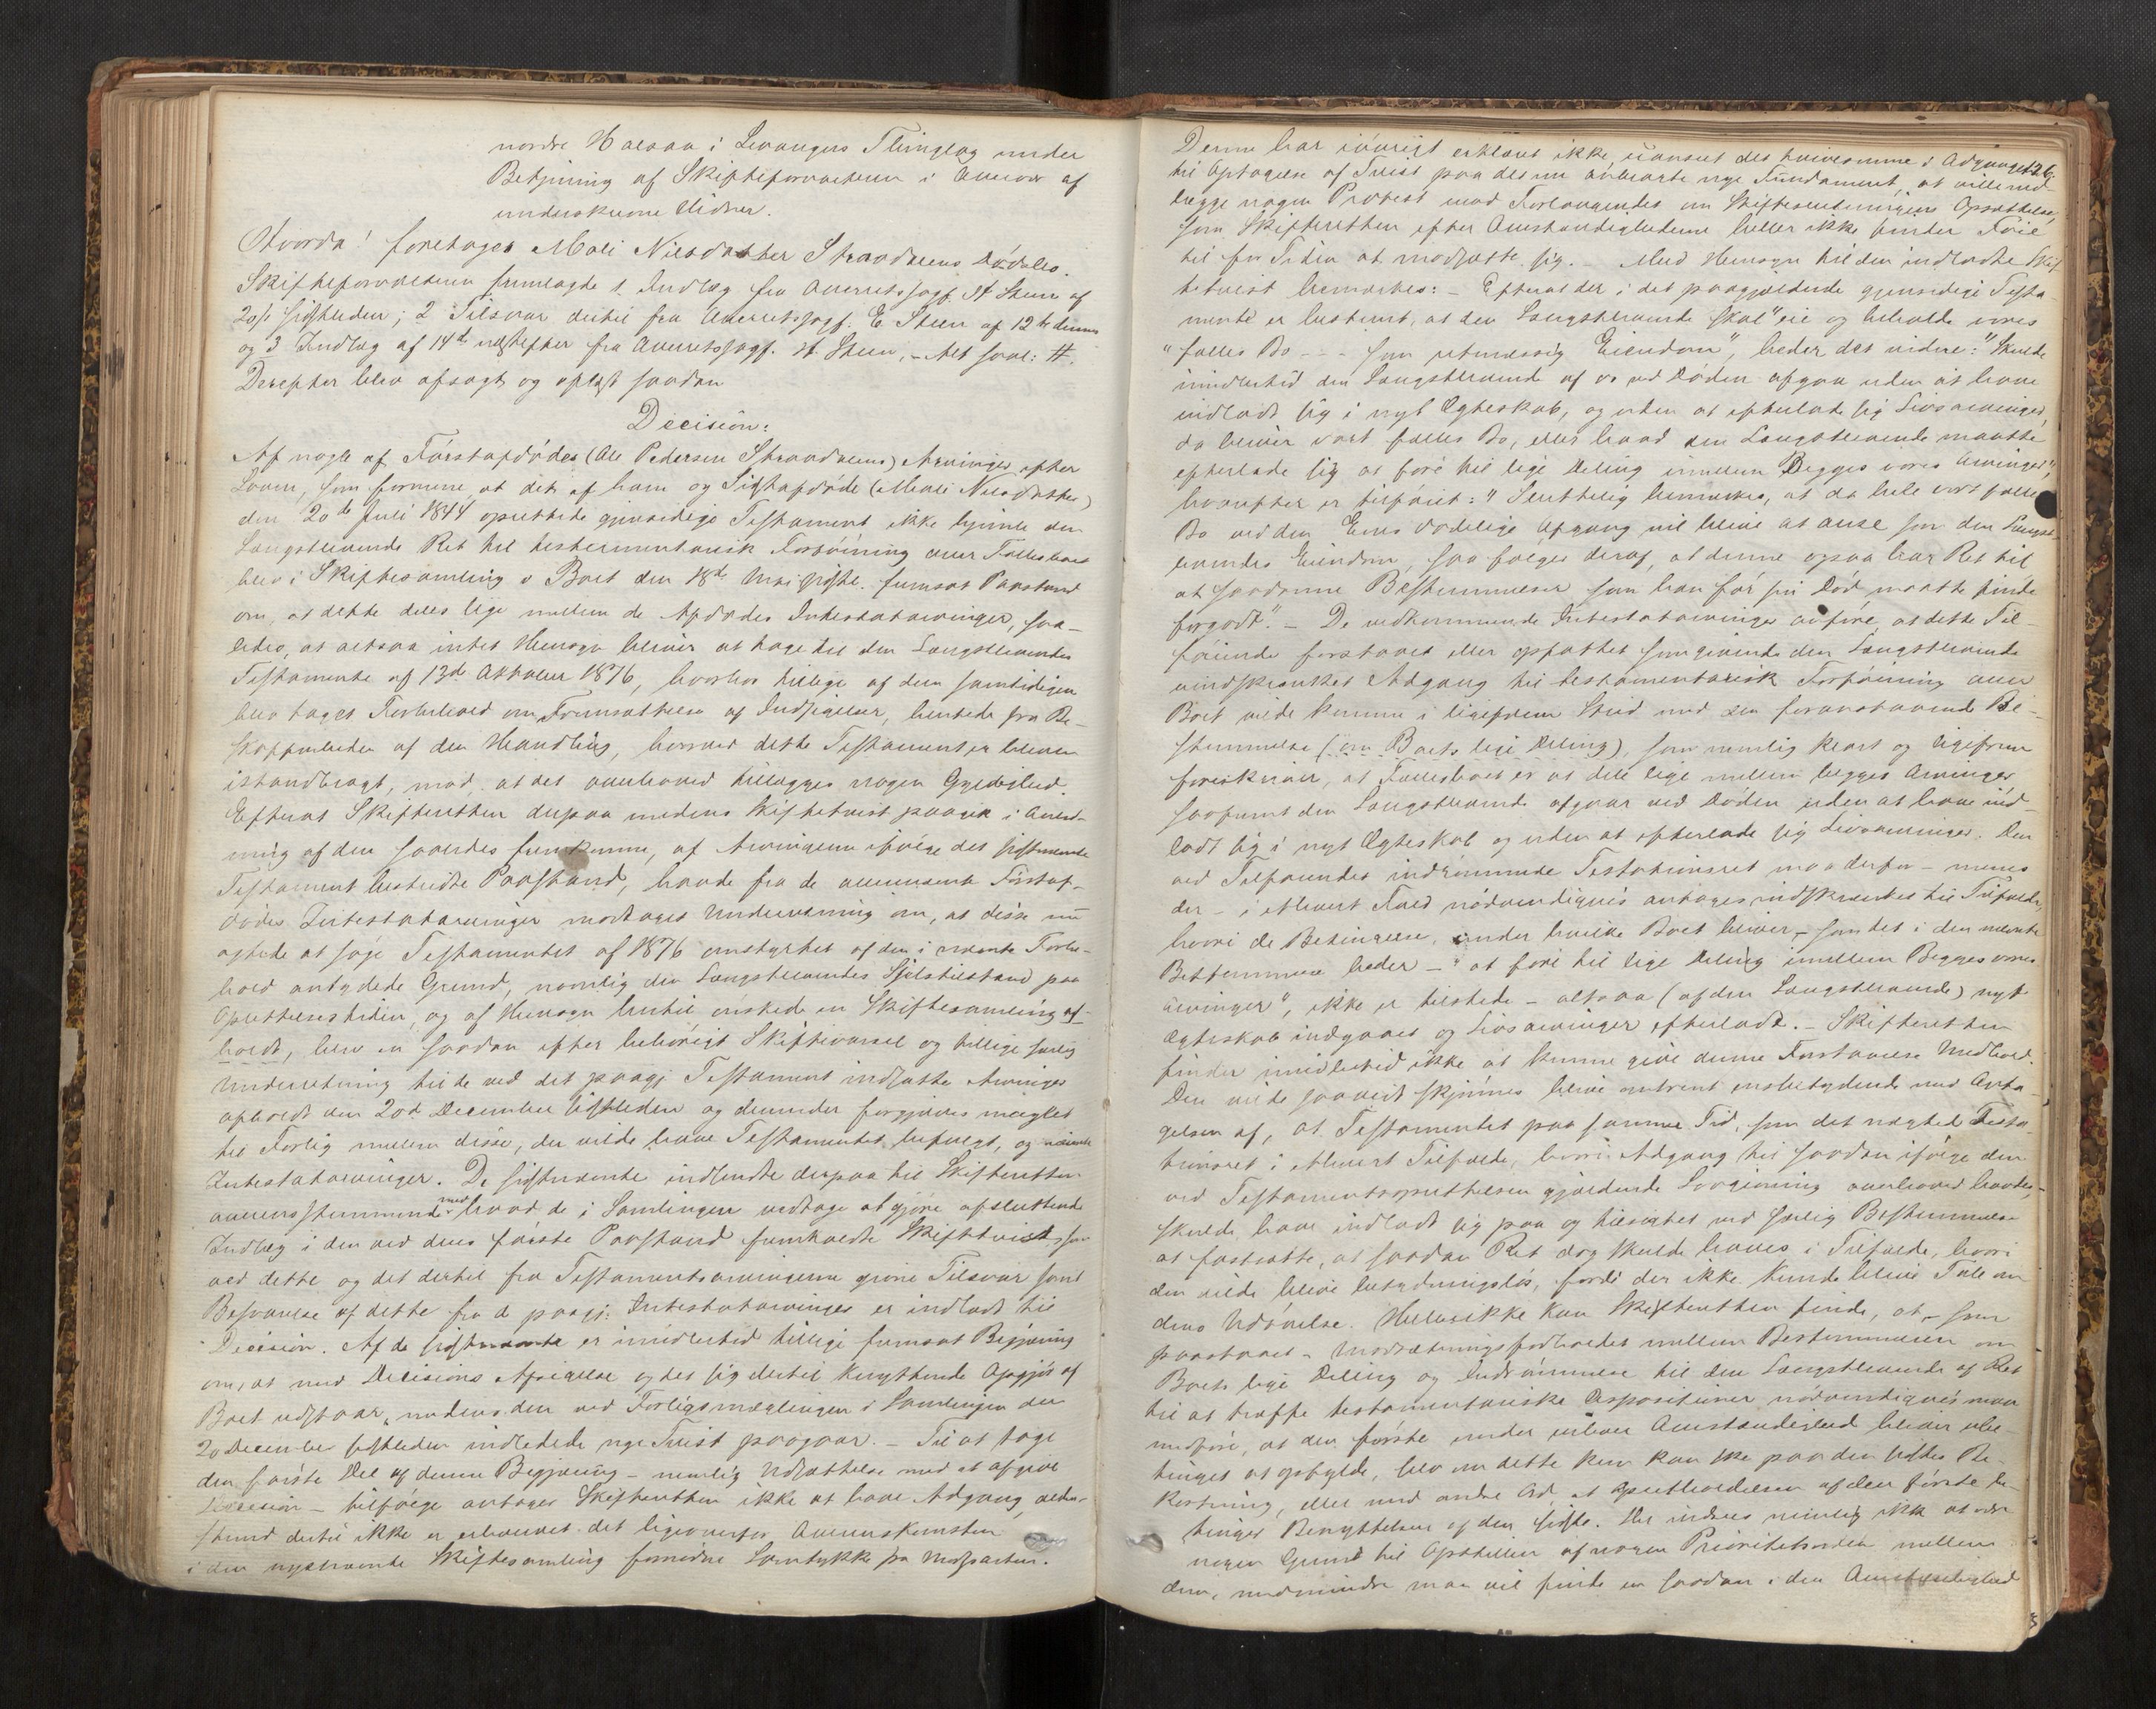 nordre Halsaa i Levangers Thinglag under
Betjening af Skifteforvalteren i Overvær af
underskrevne Vidner.
Hvorda! foretages Mali Nilsdatter Strandveiens Dødsbo.
Skifteforvalteren fremlagde 1. Indlæg fra Overretssagf. St Steen af
20/1 sidstleden; 2 Tilsvar dertil fra Overretssagf. E Steen af 12te dennes
og 3 Indlæg af 14de næstefter fra Overretssagf. St. Steen, – Alt saal: #.
Derefter blev afsagt og oplæst saadan
Decision:
Af nogle af Førstafdødes (Ole Pedersen Strandveiens) Arvinger efter
Loven, som formene at det af ham og Sidstafdøde (Mali Nilsdatter)
den 20de Juli 1844 oprettede gjensidige Testament ikke hjemle den
Længstlevende Ret til testamentarisk Forføining over Fællesboet
blev i Skiftesamling i Boet den 18de Mai sidstl. fremsat Paastand
om, at dette deles lige mellem de Afdødes Intestatarvinger, saa-
ledes, at altsaa intet Hensyn bliver at tage til den Længstlevendes
Testamente af 13de Oktober 1876, hvorhos tillige af dem samtidigen
blev taget Forbehold om Fremsættelse af Indsigelser, hentede fra Be-
skaffenheden af den Handling, hvorved dette Testament er bleven
istandbragt, mod, at det overhoved tillægges nogen Gyldighed.
Efterat Skifteretten derpaa medens Skiftetvist paagik i Anled-
ning af den saaledes fremkomne, af Arvingerne ifølge det sidstnævnte
Testament bestridte Paastand, havde fra de ovennævnte Førstaf-
dødes Intestatarvinger modtaget Underretning om, at disse nu
agtede at søge Testamentet af 1876 omstyrtet af den i nævnte Forbe-
hold antydede Grund, nemlig den Længstlevendes Sjælstilstand paa
Oprettelsestiden, og af Hensyn hertil ønskede en Skiftesamling af-
holdt, blev en saadan efter behørigt Skiftevarsel og tillige særlig
Underretning til de ved det paagj. Testament indsatte Arvinger
afholdt den 20de December sidstleden og derunder forgjæves mæglet
til Forlig mellem disse, der vilde have Testamentet befulgt, og nævnte
Intestatarvinger. De sidstnævnte indsendte derpaa til Skifteretten
overensstemmende med hvad de i Samlingen vedtoge at gjøre afsluttende
Indlæg i den ved deres første Paastand fremkaldte Skiftetvist, som
ved dette og det dertil fra Testamentsarvingerne givne Tilsvar samt
Besvarelse af dette fra de paagj: Intestatarvinger er indladt til
Decision. Af de sidstnævnte er imidlertid tillige fremsat Begjæring
om, at med Decisions Afsigelse og det sig dertil knyttende Opgjør af
Boet udstaar, medens den ved Forligsmæglingen i Samlingen den
20 December sidstleden indledede nye Tvist paagaar. – Til at tage
den første Del af denne Begjæring – nemlig Udsættelse med at afgive
Decision – tilfølge antages Skifteretten ikke at have Adgang, efter-
som dertil ikke er erhvervet det ligeoverfor Overenskomsten
i den nysnævnte Skiftesamling fornødne Samtykke fra Modparten.
126.
Denne har iøvrigt erklæret ikke, uanset det hvivsomme i Adgangen
til Optagelse af Tvist paa det nu anbragte nye Fundament, at ville ned-
lægge nogen Protest mod Forlangendet om Skifteslutningens Opsættelse,
som Skifteretten efter Omstændighederne heller ikke finder Føie
til for Tiden at modsætte sig. – Med Hensyn til den indladte Skif-
tetvist bemærkes: – Efterat der i det paagjældende gjensidige Testa-
mente er bestemt, at den Længstlevende skal "eie og beholde vores
"fælles Bo - - - som retmæssig Eiendom", heder det videre: "Skulde
imidlertid den Længstlevende af os ved Døden afgaa uden at have
indladt sig i nyt Ægteskab, og uden at efterlade sig Livsarvinger,
da bliver vort fælles Bo, eller hvad den Længstlevende maatte
efterlade sig at fore til lige Deling imellem Begges vores Arvinger",
hvorefter er tilføiet: "Sluttelig bemærkes, at da hele vort fælles
Bo ved den Enes dødelige Afgang vil blive at anse som den Længst-
levendes Eiendom, saa følger deraf, at denne ogsaa har Ret til
at saadanne Bestemmelser som han før sin Død maatte finde
forgodt". – De vedkommende Intestatarvinger anføre, at dette Til-
føiende forstaaet eller opfattet som givende den Længstlevende
uindskrænket Adgang til testamentarisk Forføining over
Boet vilde komme i ligefrem Strid med den foranstaaende Be-
stemmelse (om Boets lige Deling), som nemlig klart og ligefrem
foreskriver, at Fællesboet er at dele lige mellem begges Arvinger
saafremt den Længstlevende afgaar ved Døden uden at have ind-
ladt sig i nyt Ægteskab og uden at efterlade sig Livsarvinger. Den
ved Tilføiendet indrømmede Testationsret maa derfor – menes
der – i ethvert Fald nødvendigvis antages indskrænket til Tilfælde,
hvori de Betingelser, under hvilke Boet bliver – som det i den nævnte
Bestemmelse heder – "at fore til lige Deling imellem Begges vores
Arvinger", ikke er tilstede – altsaa (af den Længstlevende) nyt
Ægteskab indgaaet og Livsarvinger efterladt. – Skifteretten
finder imidlertid ikke at kunne give denne Forstaaelse Medhold.
Den vilde saavidt skjønnes blive omtrent ensbetydende med Anta-
gelsen af, at Testamentet paa samme Tid, som det nægtede Testa-
tionsret i ethvert Tilfælde, hvori Adgang til saadan ifølge den
ved Testamentsoprettelsen gjældende Lovgivning overhoved havdes,
skulde have indladt sig paa og tilsigtet ved særlig Bestemmelse
at fastsætte, at saadan Ret dog skulde haves i Tilfælde, hvori
den vilde blive betydningsløs, fordi der ikke kunde blive Tale om
dens Udøvelse. Hellerikke kan Skifteretten finde, at – som
paastaaet – Modsætningsforholdet mellem Bestemmelsen om
Boets lige Deling og Indrømmelse til den Længstlevende af Ret
til at træffe testamentariske Dispositioner nødvendigvis maa
medføre, at den første under enhver Omstændighed bliver ube-
tinget at opfylde, selv om dette kun kan ske paa den sidstes Be-
kostning, eller med andre Ord, at Opretholdelsen af den første be-
tinger Benyttelsen af den sidste. Her indsees nemlig ikke at være
nogen Grund til Opstillen af nogen Prioritetsorden mellem
dem, medmindre man vil finde en saadan i den Omstændighed